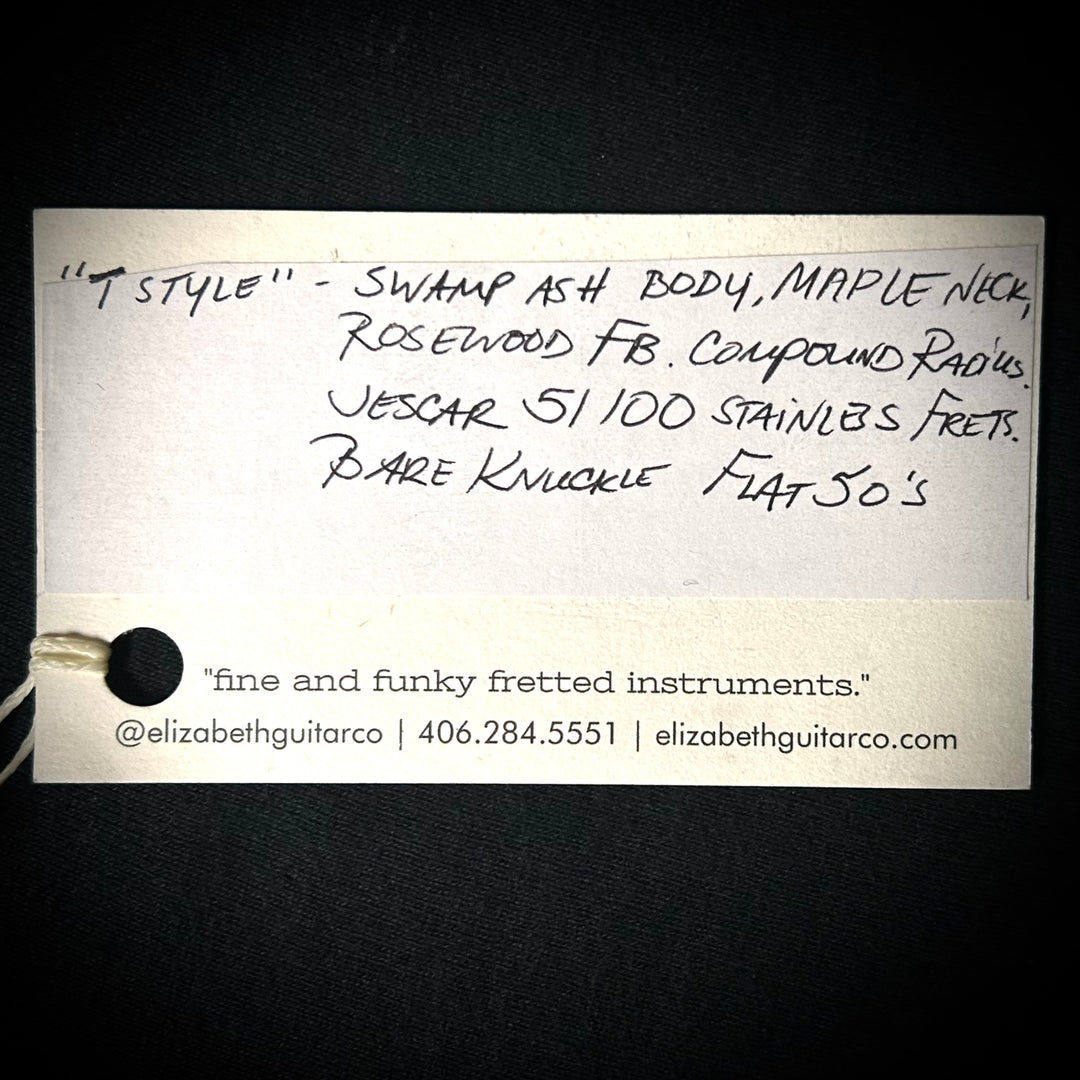 "T STYLE" - SWAMP ASH BODY, MAPLE NECK,
ROSEWOOD FB. COMPOUND RADiUS.
JESCAR 51100 STAiNLESS FRETS.
BARE KNUCKLE FLAT 50'S
"fine and funky fretted instruments."
@elizabethguitarco | 406.284.5551 | elizabethguitarco.com